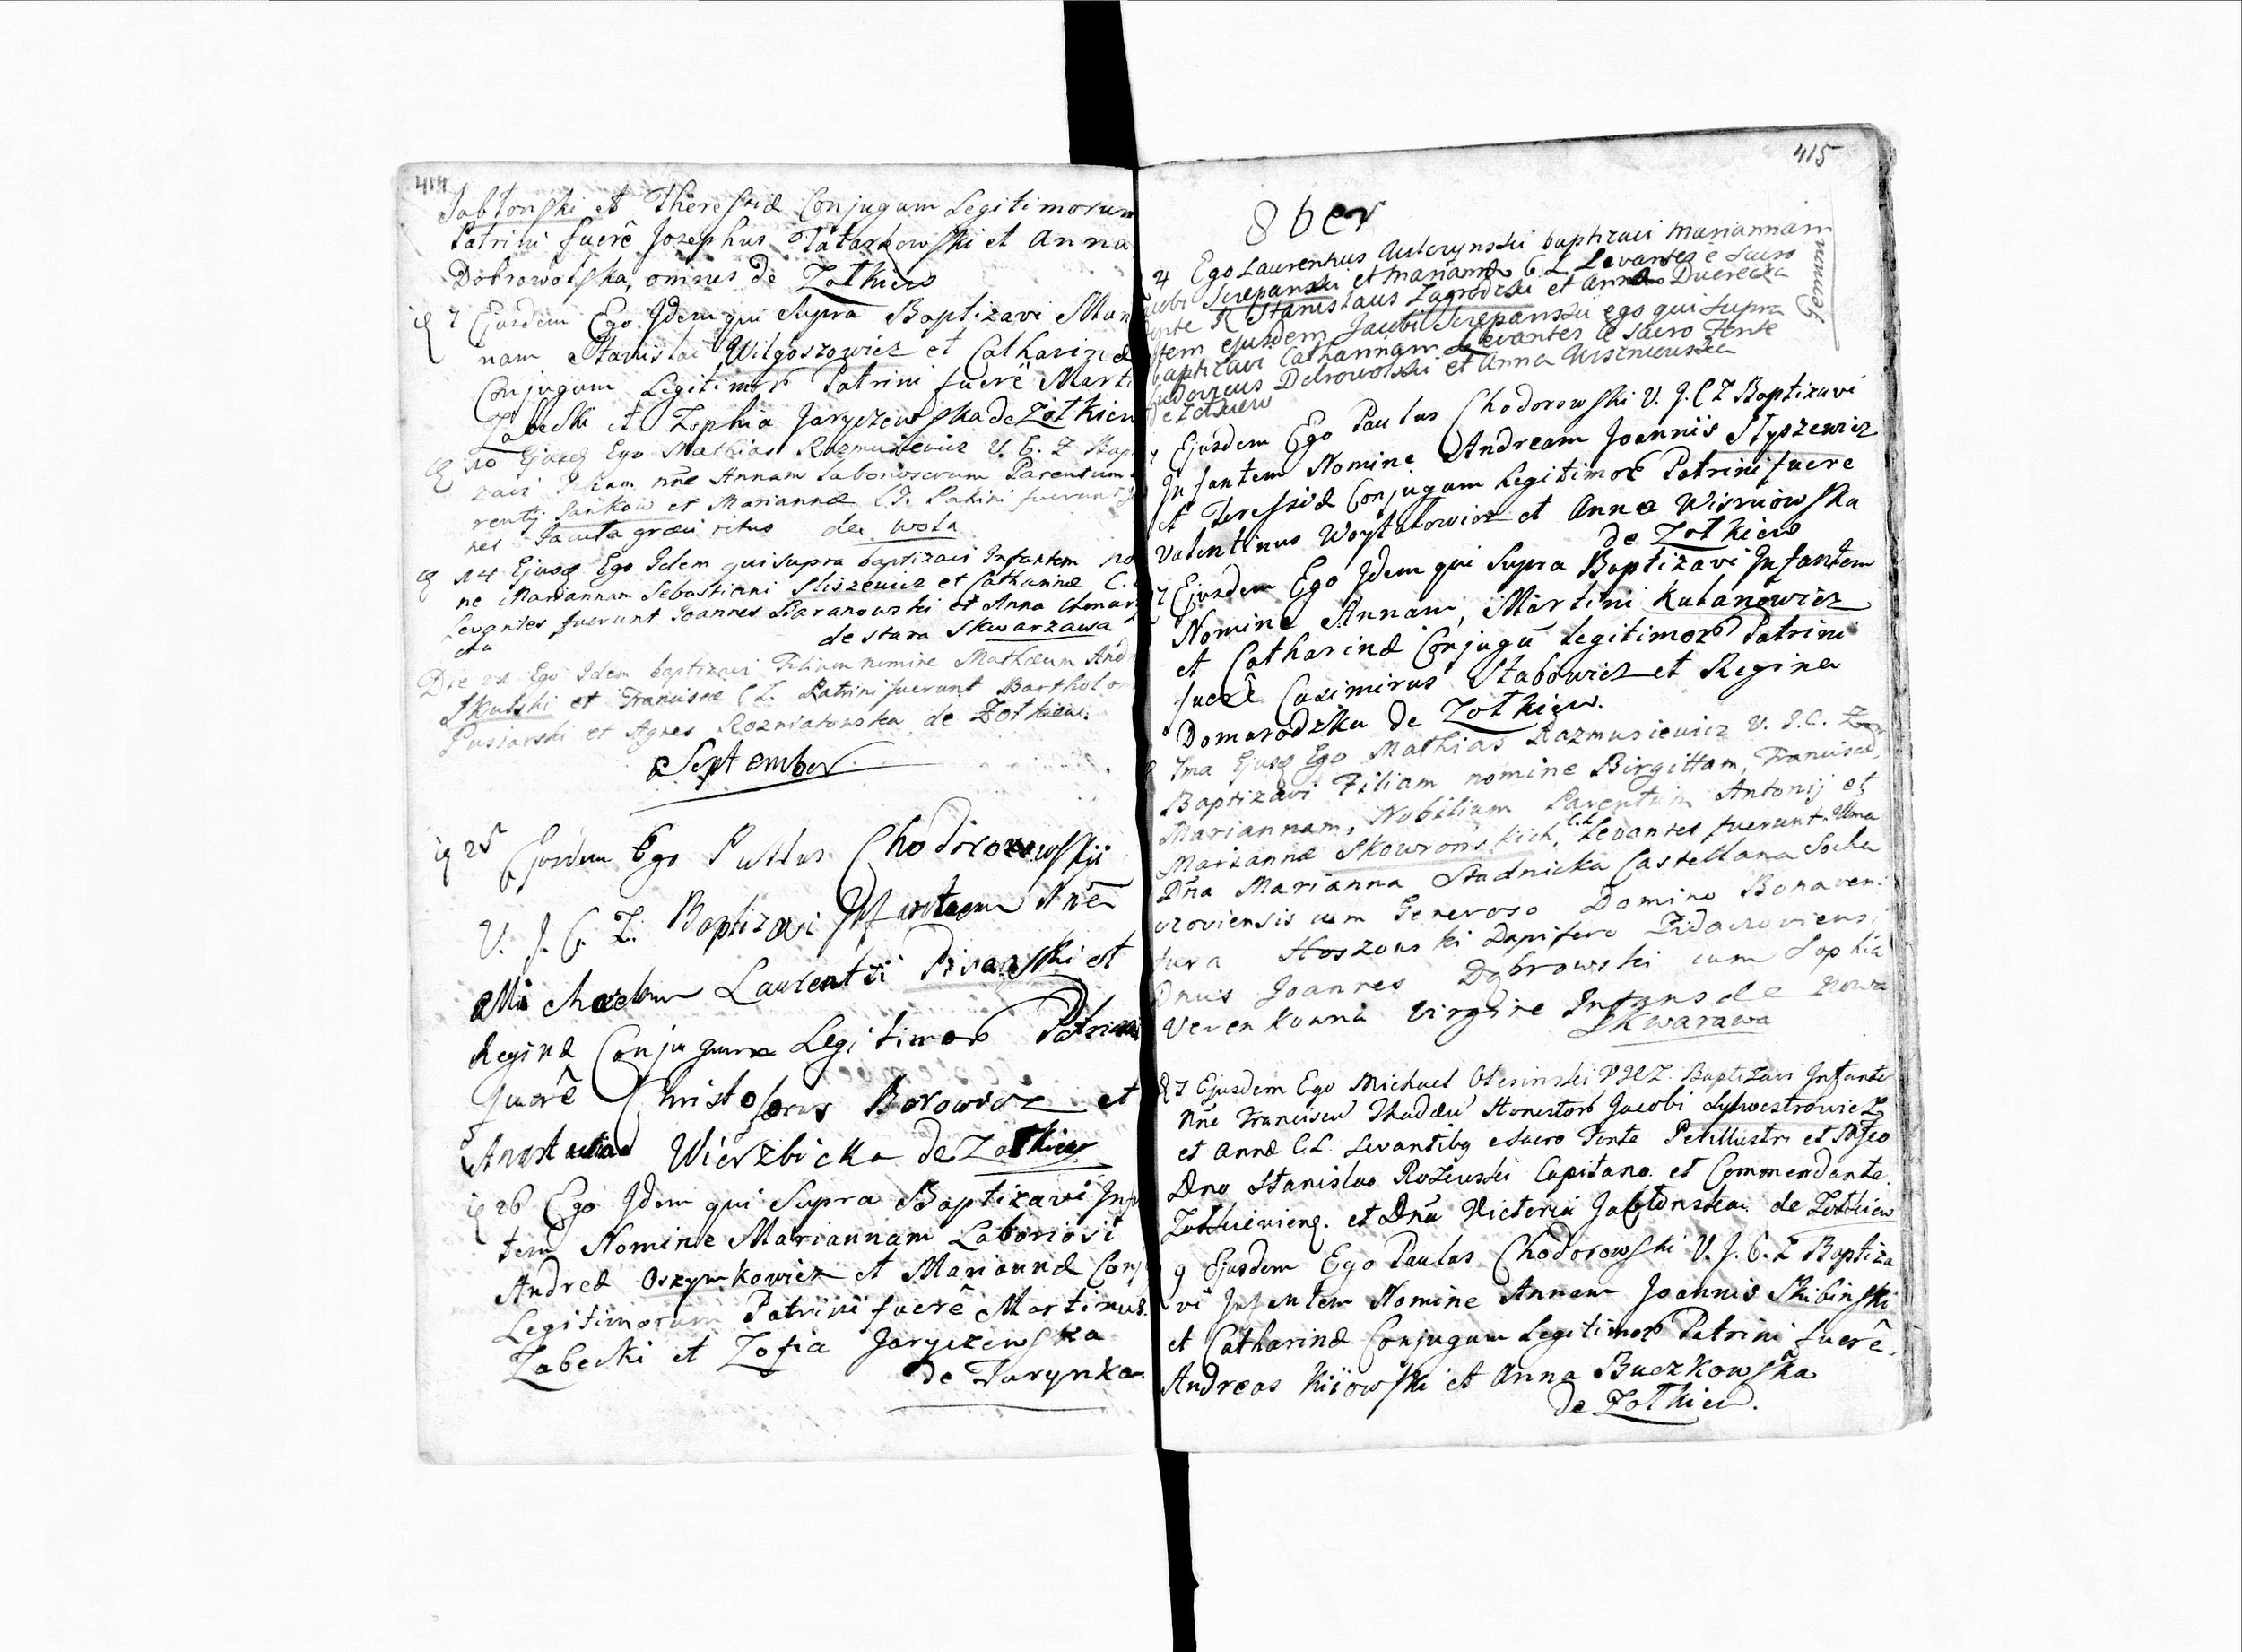 414
Jabłonski et Theressiæ Conjugum Legitimorum
Patrini fuerê Josephus Tatarkowski et Anna
Dobrowolska, omnes de Zołkiew
7 Ejusdem Ego Idem qui Supra Baptizavi Marian
nam Stanislai Wilgoszowicz et Catharinæ
Conjugum Legitimor Patrini fuerê Marti
Zabecki et Zophia Jaryczewska de Zołkiew
10 Ejusd Ego Mathias Razmusiewicz V. C. Z Bap
zavi Filiam nñe Annam Laboriosorum Parentum
rentij Sankow et Mariannæ C L. Patrini fuerunt
nes Jacuta græci ritus de Wola
14 Ejusd Ego Idem qui supra baptizavi Infantem no
ne Mariannam Sebastiani Sliszewicz et Catharinæ C.
Levantes fuerunt Joannes Baranowski et Anna
de stara Skwarzawa
Die Ego Idem baptizavi Filium nomine Mathæum And
Skulski et Franciscæ C L. Patrini fuerunt Bartholom
Pusiarski et Agnes Rozniatowska de Zołkiew.
September
25 Ejusdem Ego Paulus Chodorowskij
V. J. C. Z. Baptizavi Infantem Nñe
Michaelem Laurentii Pisarski et
Reginæ Conjugum Legitimor Patrini
fuerê Christoforus Borowicz et
Anastasia Wierzbicka de Zołkiew
26 Ego Idem qui Supra Baptizavi Infan
tem Nomine Mariannam Laboriosi
Andreæ Oszymkowicz et Mariannæ Conj
Legitimorum Patrini fuerê Martinus
Zabecki et Zofia Jaryczewska
de Turynka
415
8ber
4 Ego Laurentius baptizavi Mariannam
Jacobi Sczepanski et Mariannæ C. L Levantes è Sacro
Fonte Stanislaus Zagrodzki et Anna
Item ejusdem Jacobi Sczepanski ego qui supra
baptizavi Catharinam Levantes è Sacro Fonte
Ludovicus Dobrowolski et Anna Wiszniowska
de Zołkiew
Gemini
Ejusdem Ego Paulus Chodorowski V. J. C Z Baptizavi
Infantem Nomine Andream Joannis Slyszewicz
et Teressiæ Conjugum Legitimor Patrini fuere
Valentinus Woytałowicz et Anna Wisniowska
de Zołkiew
7 Ejusdem Ego Idem qui Supra Baptizavi Infantem
Nomine Annam, Martini Kulanowicz
et Catharinæ Conjugũ Legitimor Patrini
fuerê Casimirus Stabowicz et Regina
Domaradzka de Zołkiew.
7ma Ejusd Ego Mathias Razmusiewicz V. J. C. Z
Baptizavi Filiam nomine Birgittam, Franciscã,
Mariannam, Nobilium Parentum Antonij et
Mariannæ Skowronskich, C.L. Levantes fuerunt Illma
Dña Marianna Stadnicka Castellana Socha
czoviensis cum Generoso Domino Bonaven:
tura Hoszowski Dapifero Zidaczoviensi
Dnus Joannes Dąbrowski cum Sophia
Verenkowna Virgine Infans de Nowa
Skwarawa
7 Ejusdem Ego Michael Olesinski V J C Z. Baptizavi Infante
Nñe Franciscũ Thaddeũ Honestor Jacobi Sylwestrowicz
et Annæ C.L. Levantibg e Sacro Fonte Perillustri et Mgfco
Dno Stanislao Rożewski Capitano et Commendante
Zołkieviens. et Dñã Victoriã Jabłonska de Zołkiew
9 Ejusdem Ego Paulus Chodorowski V. J. C. Z Baptiza
vi Infantem Nomine Annam Joannis Skibinski
et Catharinæ Conjugum Legitimor Patrini fuerê.
Andreas Kiiowski et Anna Buczkowska
de Zołkiew.